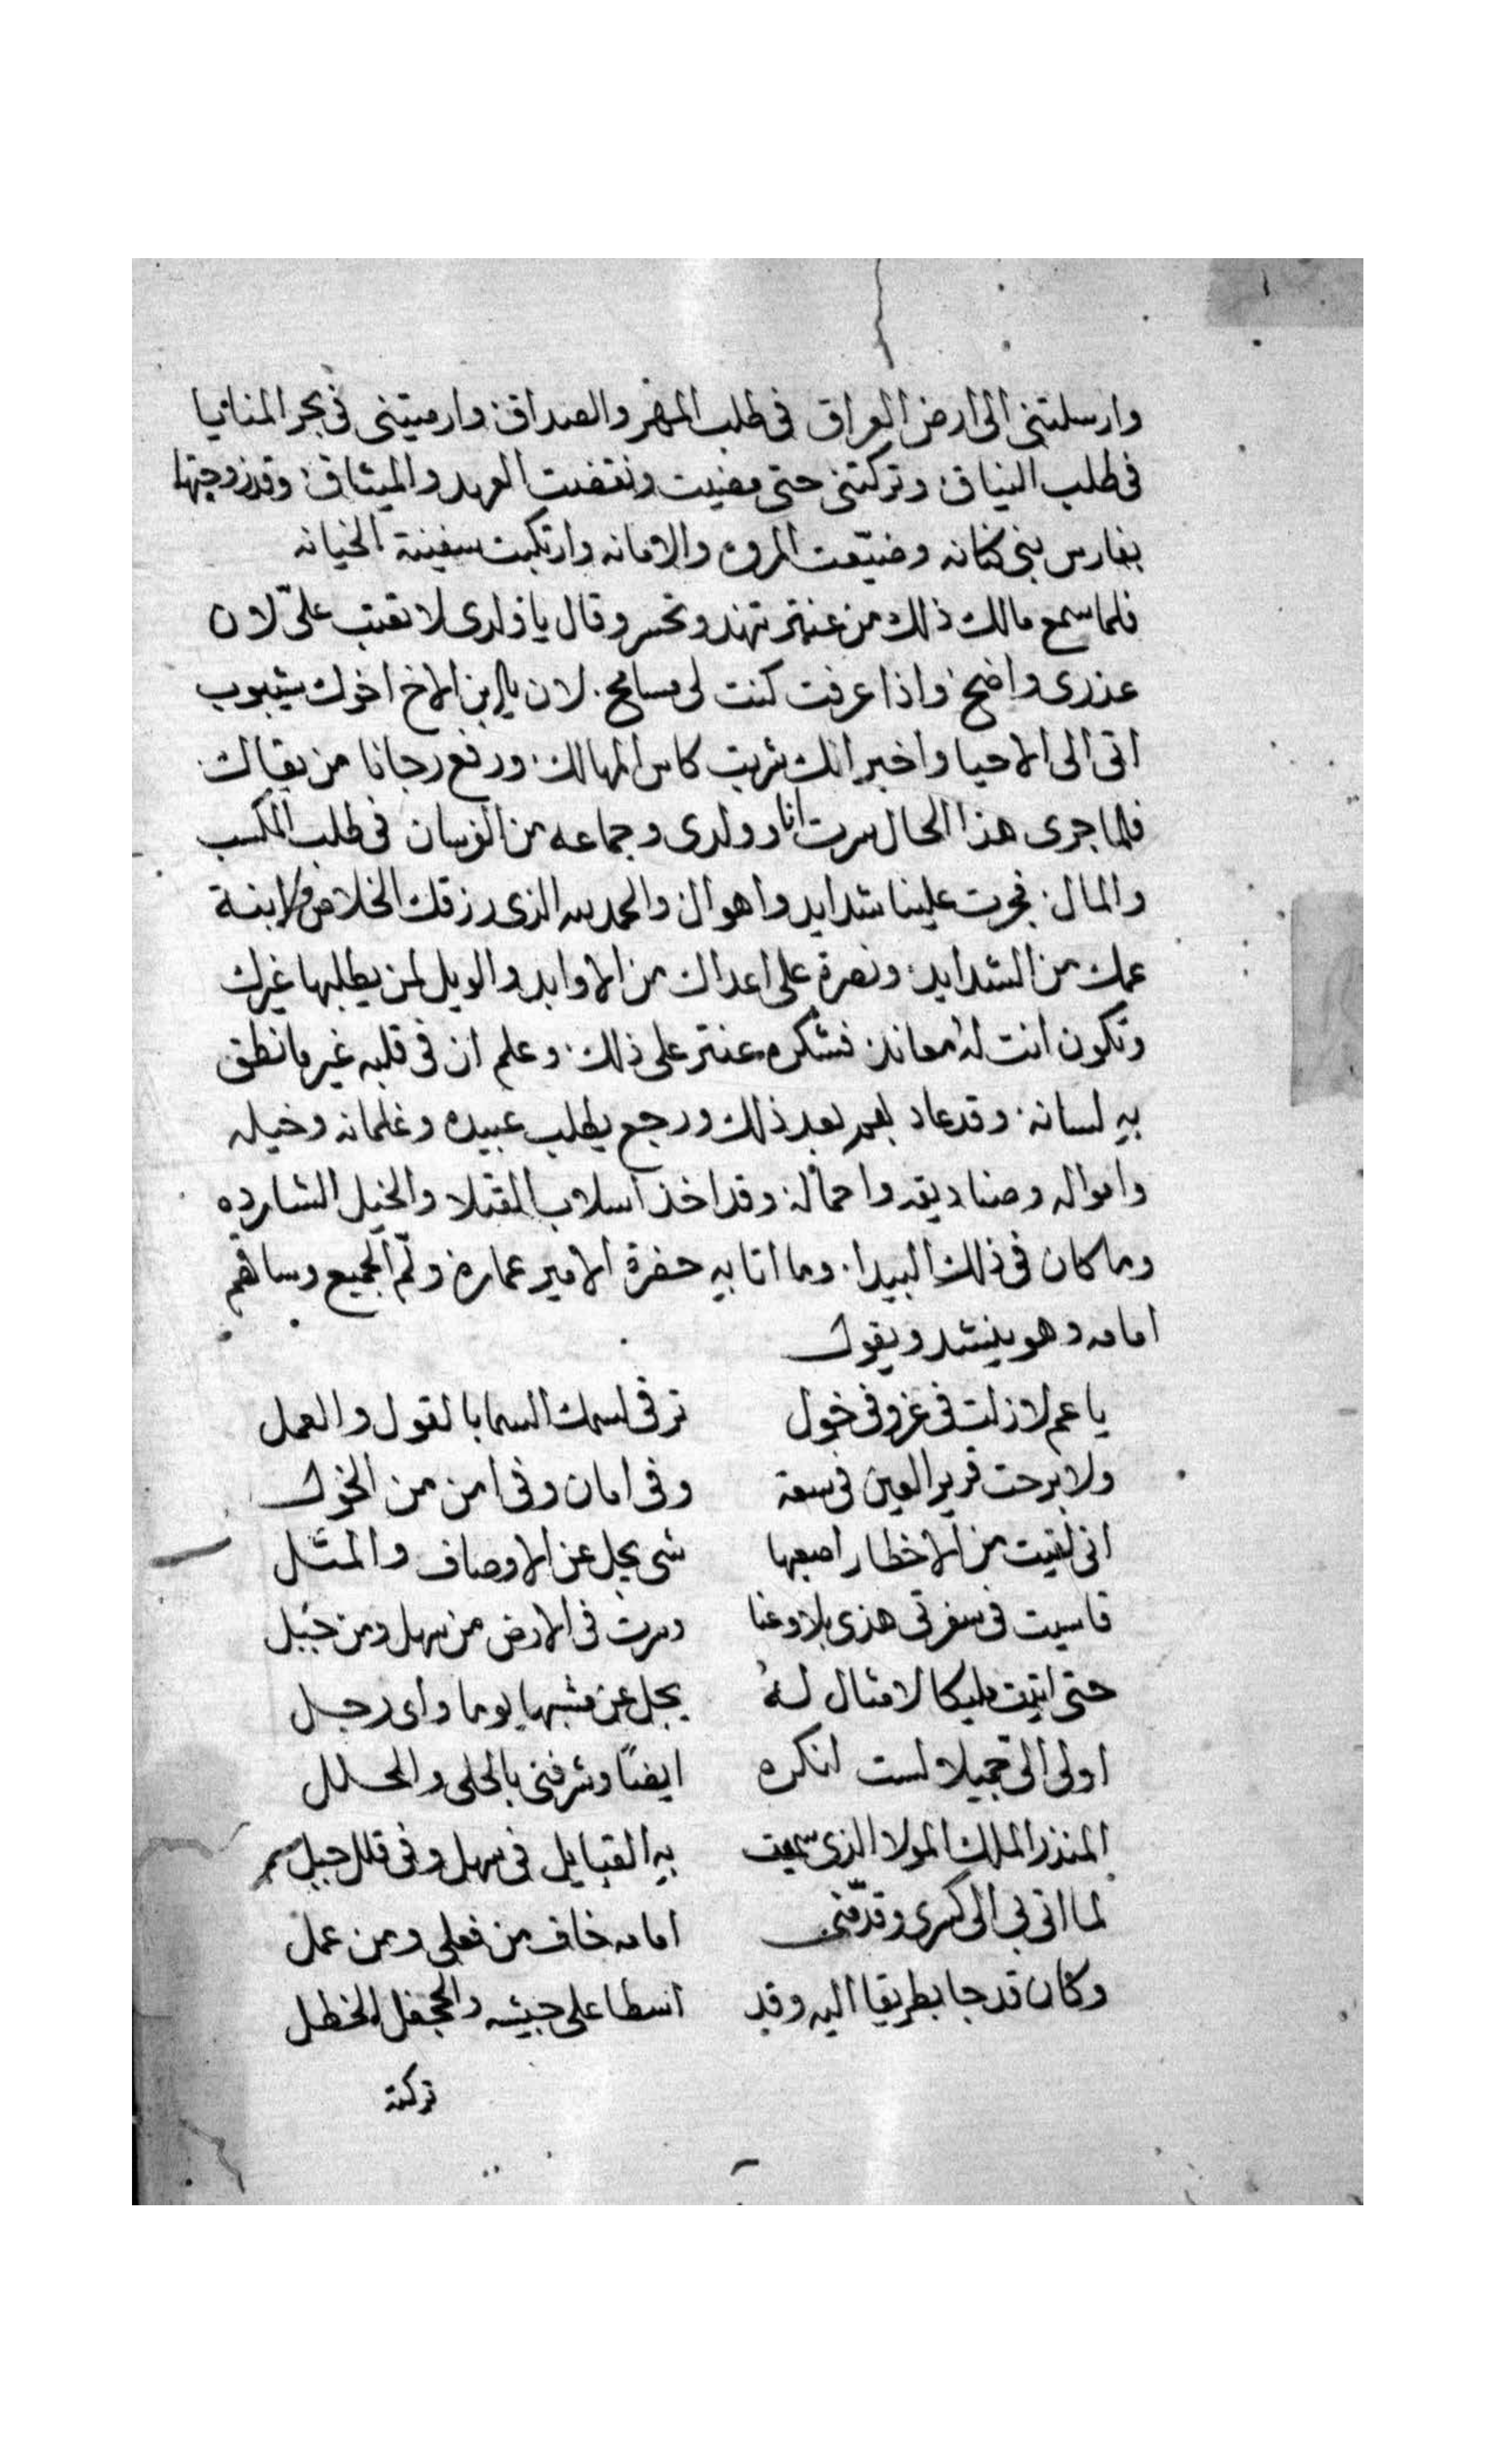 وارسلتني الى ارض العراق في طلب المهر والصداق وارميتني في بحر المنايا
في طلب النياق وتركتني حتى مضيت ونقضت العهد والميثاق وقد زوجتها
بفارس بني كنانه وضيّعت المروه والامانه وارتكبت سفينة الخيانه
فلما سمع مالك ذلك من عنتر تنهد وتحسر وقال يا ولدى لا تعتب علىّ لان
عذرى واضح واذا عرفت كنت لى مسامح لان يا ابن الاخ اخوك شيبوب
اتى الى الاحيا واخبر انك شربت كاس المهالك ورفع رجانا من بقاك
فلما جرى هذا الحال سرت انا وولدى وجماعه من الفرسان في طلب المكسب
والمال فجرت علينا شدايد واهوال والحمد لله الذى رزقك الخلاص لابنة
عمك من الشدايد ونصرة على اعداك من الاوابد والويل لمن يطلبها غيرك
وتكون انت له معاند فشكره عنتر على ذلك وعلم ان في قلبه غير ما نطق
به لسانه وقد عاد بعد ذلك ورجع يطلب عبيده وغلمانه وخيله
وامواله وصناديقه واحماله وقد اخذ اسلاب القتلا والخيل الشارده
وما كان في ذلك البيدا وما اتا به حضرة الامير عماره ولمّ الجميع وساقهم
امامه وهو ينشد ويقول
يا عم لا زلت في عز وفي خول ترقى اسمك السما بالقول والعمل
ولا برحت قرير العين في سعة وفي امان وفي امن من الخول
انى لقيت من الاخطار اصعبها شى يجل عن الاوصاف والمثل
قاسيت في سفرتى هذى بلا وعنا وسرت في الارض من سهل ومن جبل
حتى اتيت مليكا لا مثال لهُ يجل عن مشبها يوما واى رجل
اولى الىّ جميلا لست انكره ايضًا وشرفنى بالحلى والحلل
المنذر الملك المولا الذى سمعت به القبايل في سهل وفي قلل جبل
لما اتى بى الى كسرى وقدّمنى امامه خاف من فعلى ومن عمل
وكان قد جا بطريقا اليه وقد اسطا على جيشه والجحفل الخطل
تركته